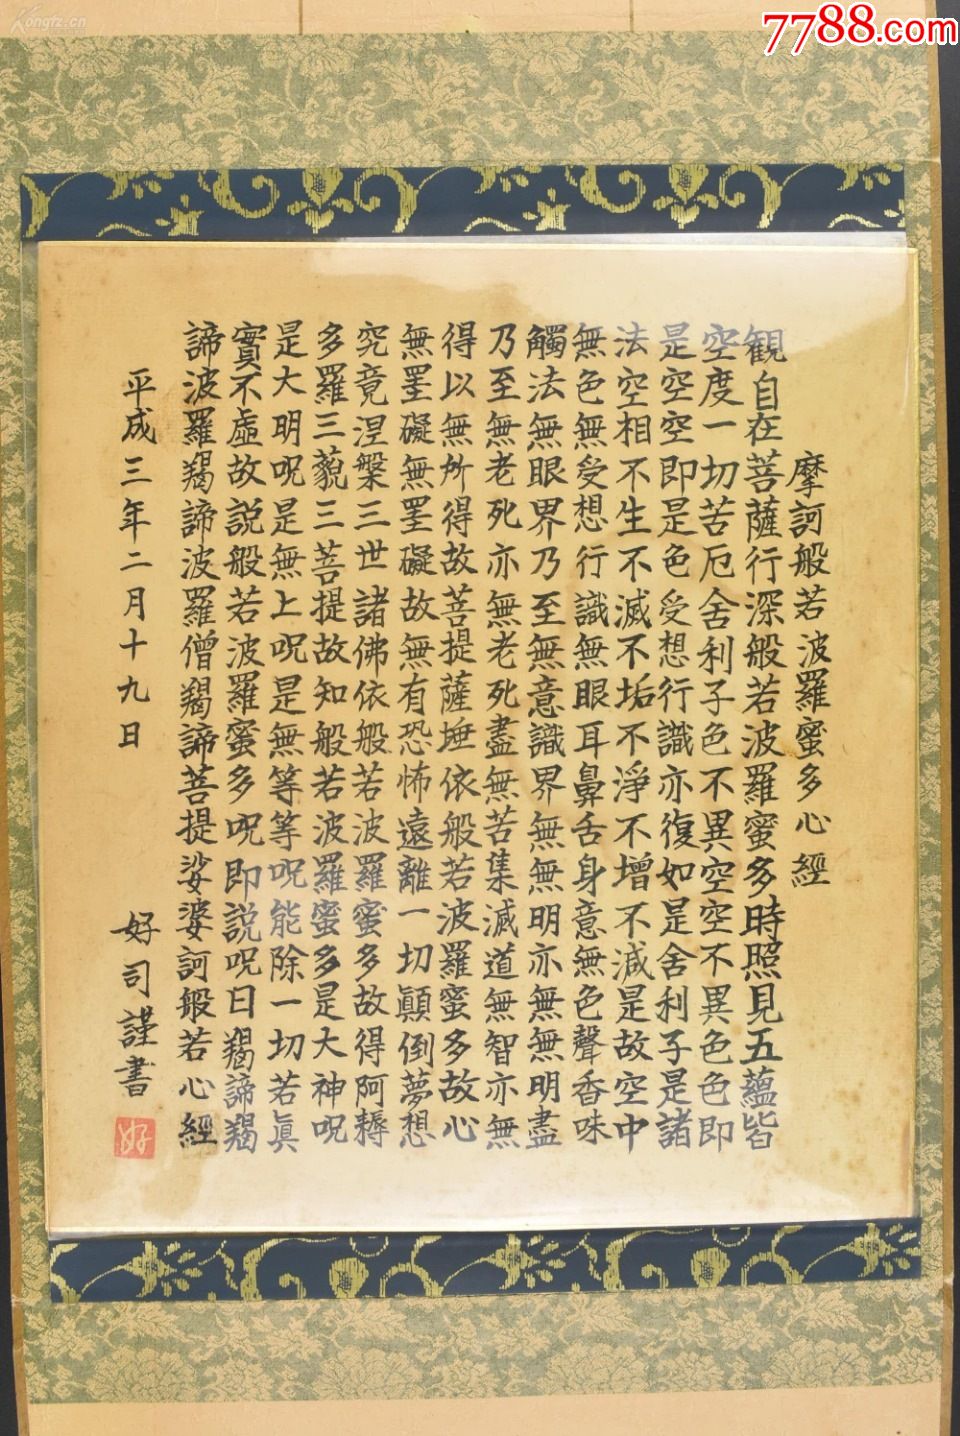 摩訶般若波羅蜜多心經
観自在菩薩行深般若波羅蜜多時照見五蘊皆
空度一切苦厄舍利子色不異空空不異色色即
是空空即是色受想行識亦復如是舍利子是諸
法空相不生不滅不垢不淨不增不減是故空中
無色無受想行識無眼耳鼻舌身意無色聲香味
觸法無眼界乃至無意識界無無明亦無無明盡
乃至無老死亦無老死盡無苦集滅道無智亦無
得以無所得故菩提薩埵依般若波羅蜜多故心
無罣礙無罣礙故無有恐怖遠離一切顛倒夢想
究竟涅槃三世諸佛依般若波羅蜜多故得阿耨
多羅三藐三菩提故知般若波羅蜜多是大神呪
是大明呪是無上呪是無等等呪能除一切苦眞
實不虛故説般若波羅蜜多呪即説呪曰羯諦羯
諦波羅羯諦波羅僧羯諦菩提娑婆訶般若心經
平成三年二月十九日
好司謹書
好
7788.com
Kongfz.cn